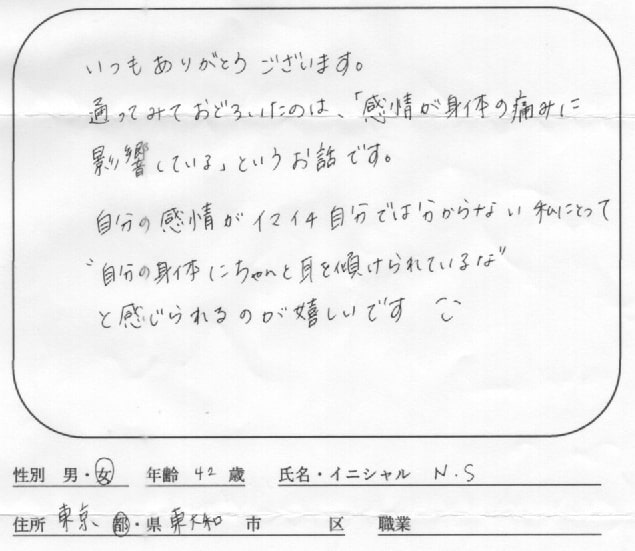 いつもありがとうございます。
通ってみておどろいたのは、「感情が身体の痛みに
影響している」というお話です。
自分の感情がイマイチ自分では分からない私にとって
"自分の身体にちゃんと耳を傾けられているな"
と感じられるのが嬉しいです
性別 男・女 年齢 42 歳 氏名・イニシャル N.S
住所 東京、都・県 東大和 市 区 職業